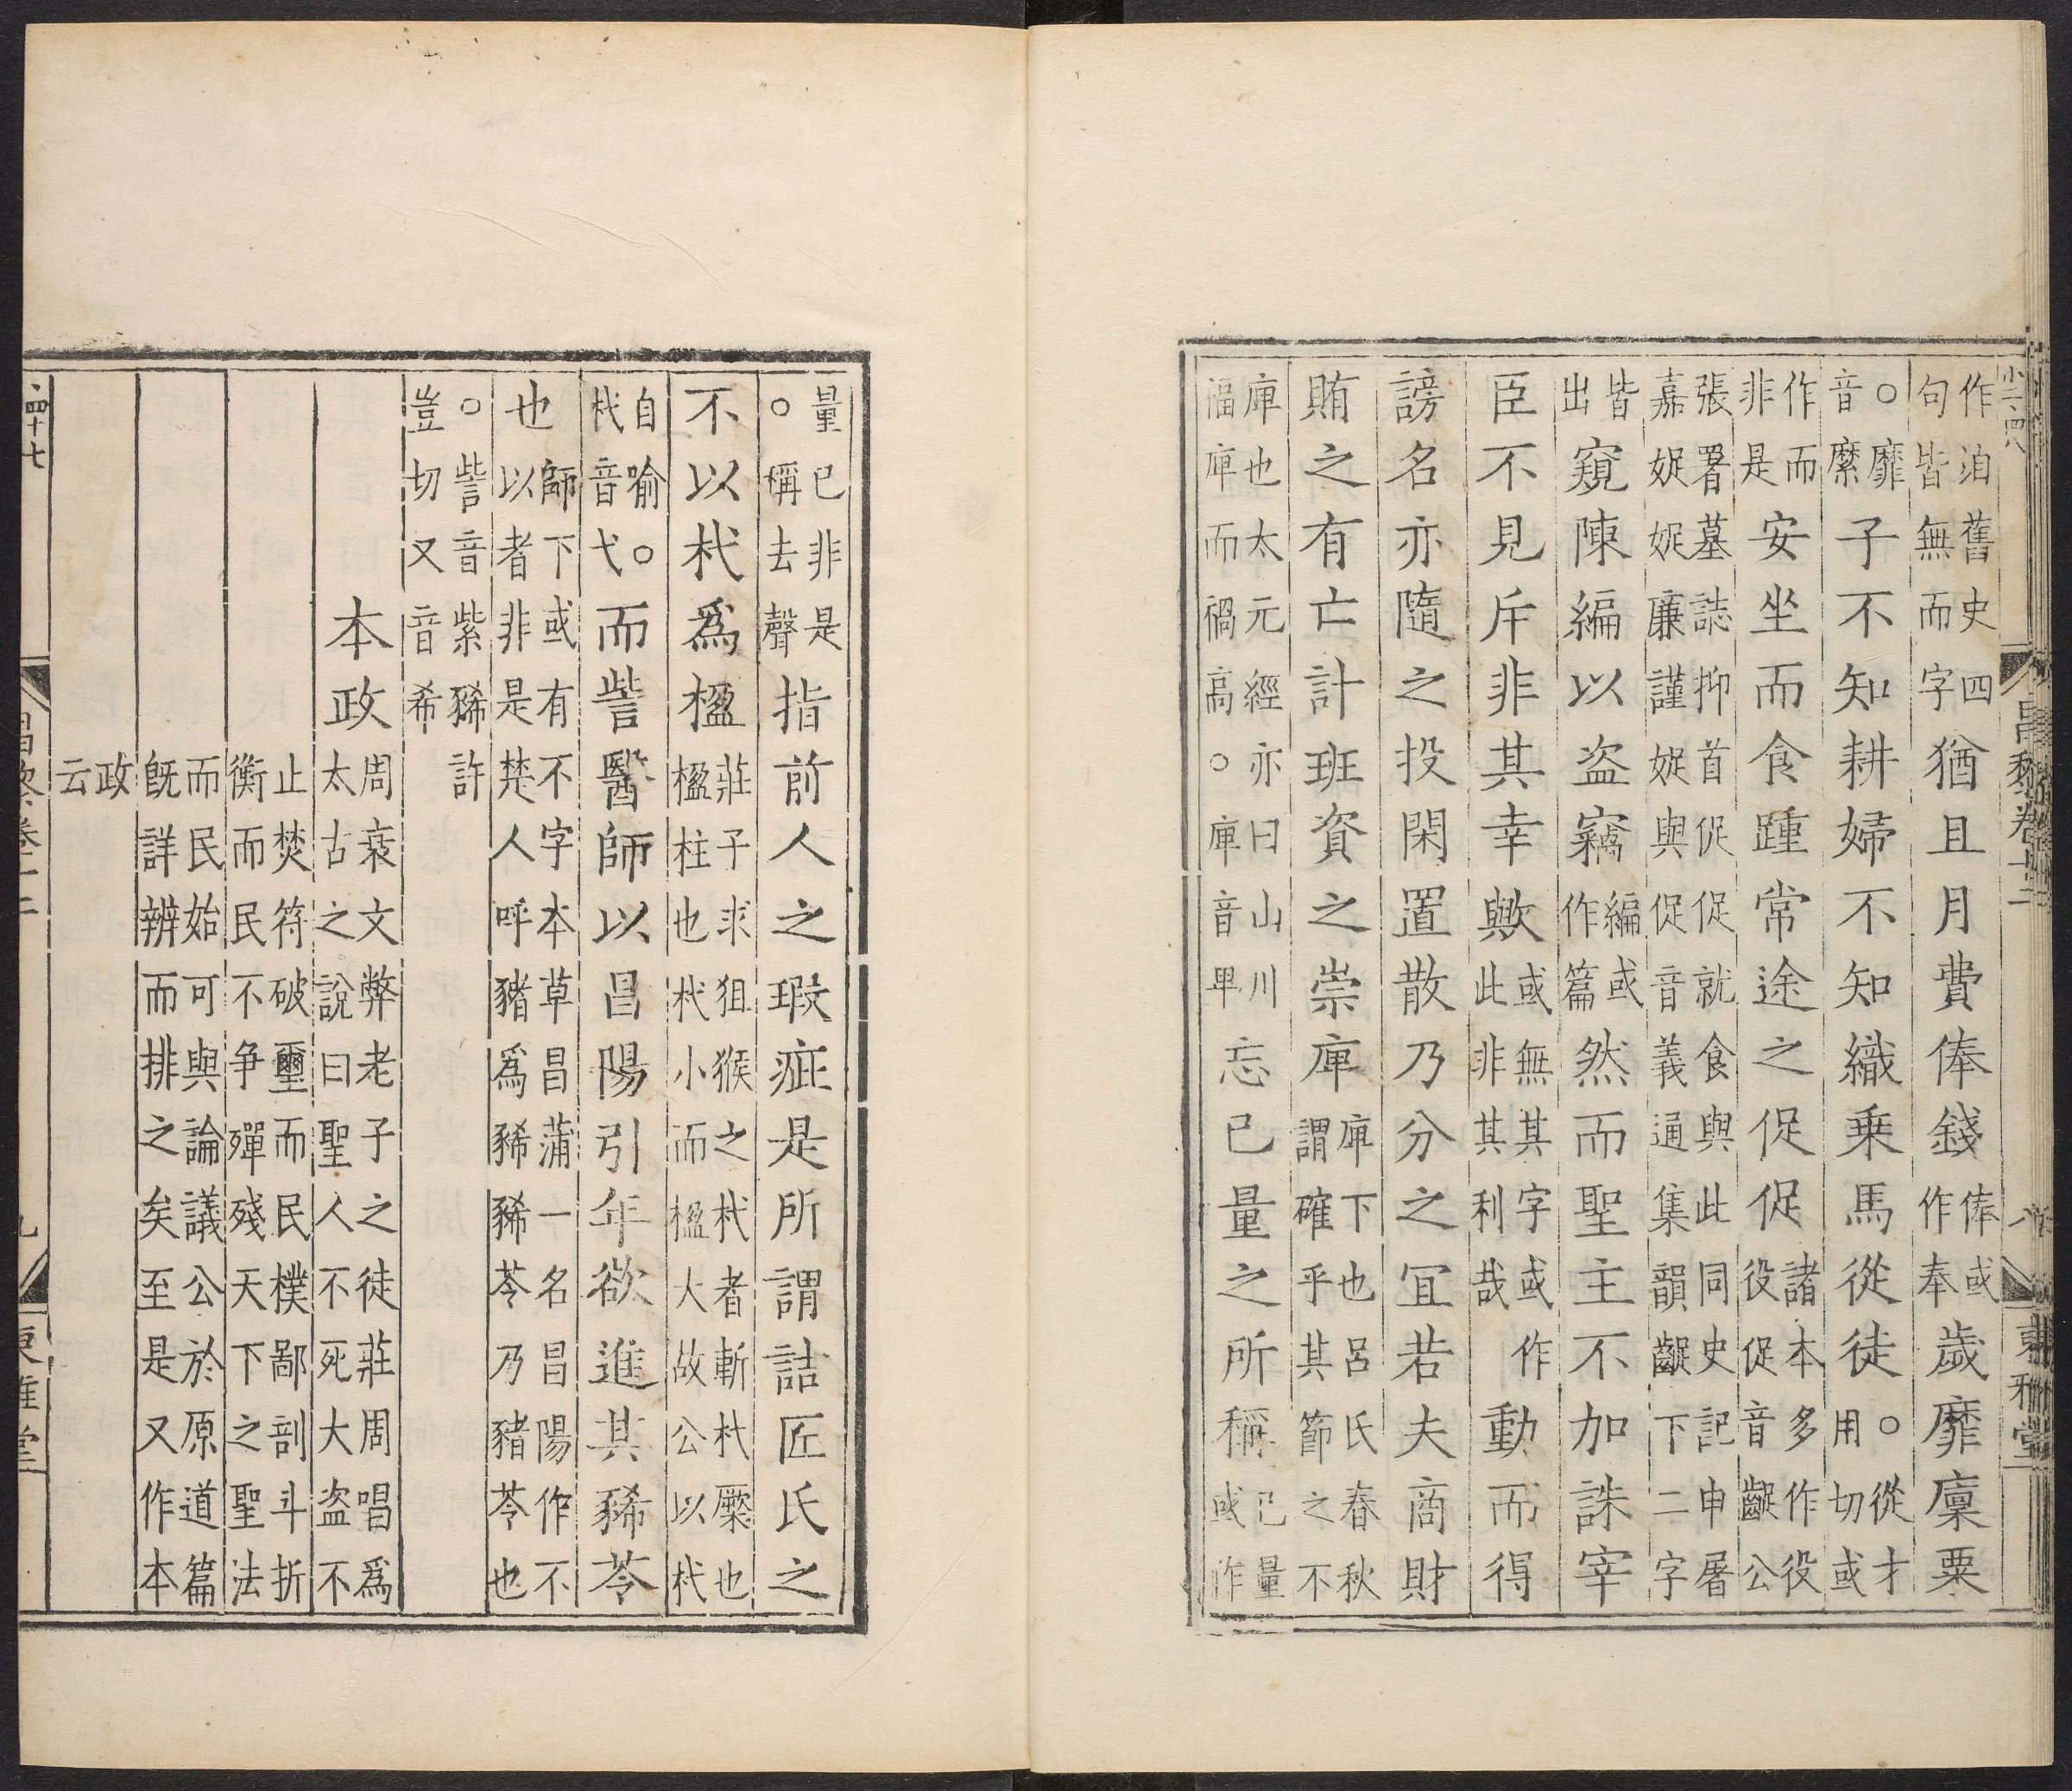 小二百四八
昌黎卷十二 八 東雅堂
作洎舊史四
句皆無而字
猶且月費俸錢
俸或
作奉
歲靡廩粟
○靡
音縻
子不知耕婦不知織乗馬從徒
○從才
用切或
作而
非是
安坐而食踵常途之促促
諸本多作役
役促音齪公
張署墓誌抑首促促就食與此同史記申屠
嘉娖娖廉謹娖與促音義通集韻齪下二字
皆
出
窺陳編以盗竊
編或
作篇
然而聖主不加誅宰
臣不見斥非其幸歟
或無其字或作
此非其利哉
動而得
謗名亦隨之投閑置散乃分之宜若夫商財
賄之有亡計班資之崇庳
庳下也吕氏春秋
謂確乎其節之不
庳也太元經亦曰山川
福庳而禍高○庳音畢
忘己量之所稱
己量
或作
量已非是
○稱去聲
指前人之瑕疵是所謂詰匠氏之
不以杙爲楹
莊子求狙猴之杙者斬杙橜也
楹柱也杙小而楹大故公以杙
自喻○
杙音弋
而訾醫師以昌陽引年欲進其豨苓
也
師下或有不字本草昌蒲一名昌陽作不
以者非是楚人呼豬爲豨豨苓乃豬苓也
○訾音紫豨許
豈切又音希
本政
周衰文弊老子之徒莊周唱爲
太古之說曰聖人不死大盗不
止焚符破璽而民樸鄙剖斗折
衡而民不争殫殘天下之聖法
而民始可與論議公於原道篇
旣詳辨而排之矣至是又作本
政
云
昌黎卷十二 九 東雅堂